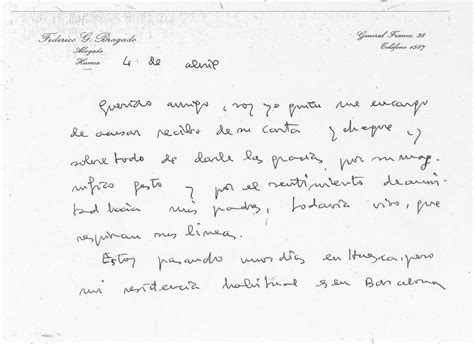 Federico G. Bragado
Abogado
Huesca
General Franco, 38
Teléfono 1587
4 de abril
Querido amigo, soy yo quien me encargo
de acusar recibo de su carta y cheque, y
sobre todo de darle las gracias por su mag-
nífico gesto y por el sentimiento de amis-
tad hacia mis padres, todavía vivo, que
respiran sus líneas.
Estoy pasando unos días en Huesca, pero
mi residencia habitual es en Barcelona